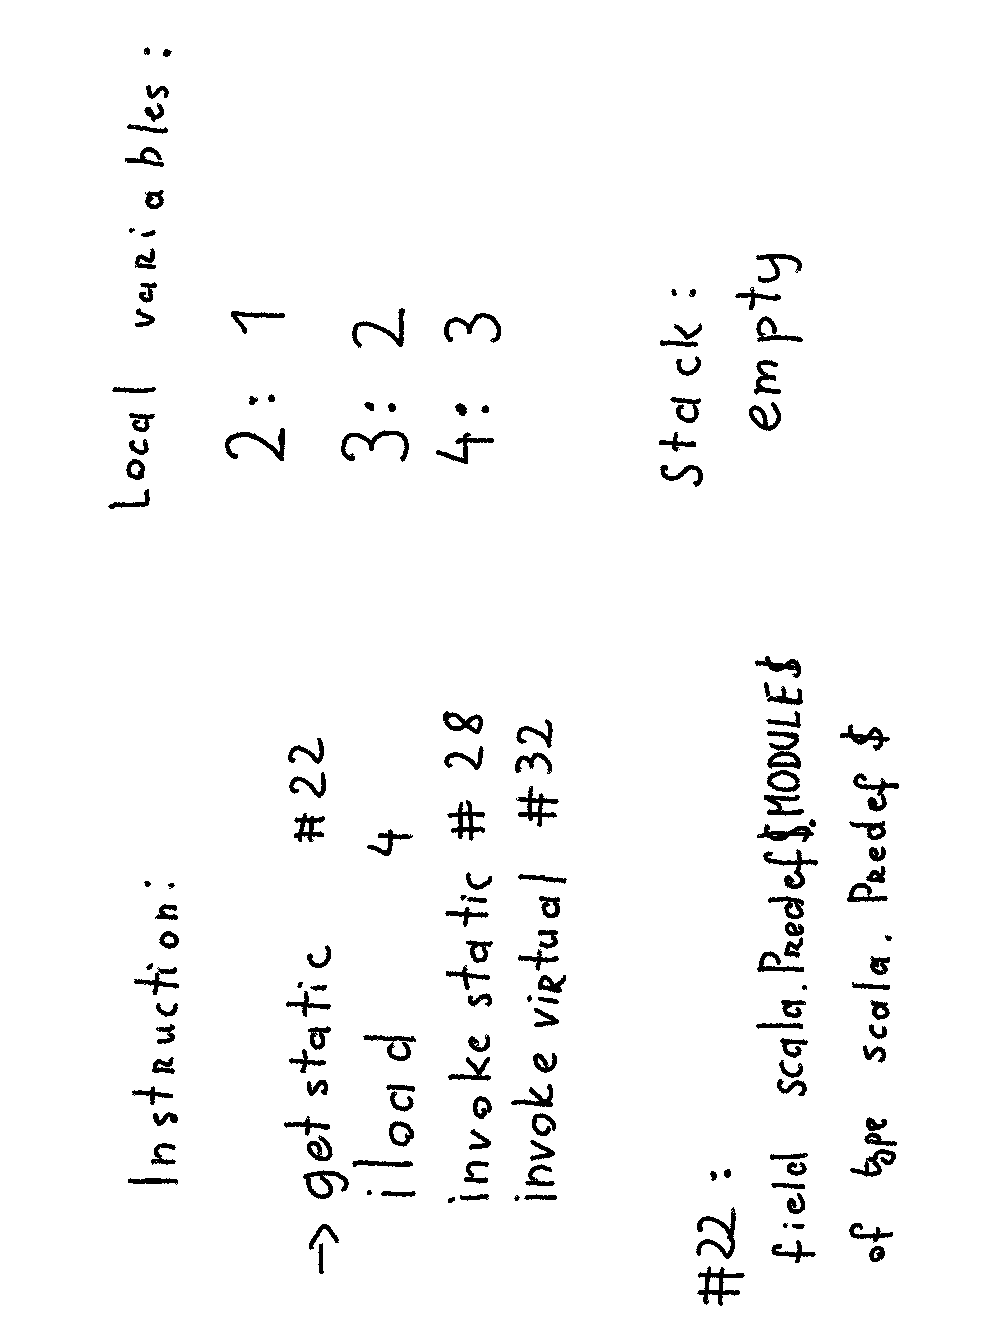 Instruction:
-> getstatic #22
iload 4
invokestatic #28
invokevirtual #32
#22:
field scala.Predef$.MODULE$
of type scala.Predef$
Local variables:
2: 1
3: 2
4: 3
Stack:
empty